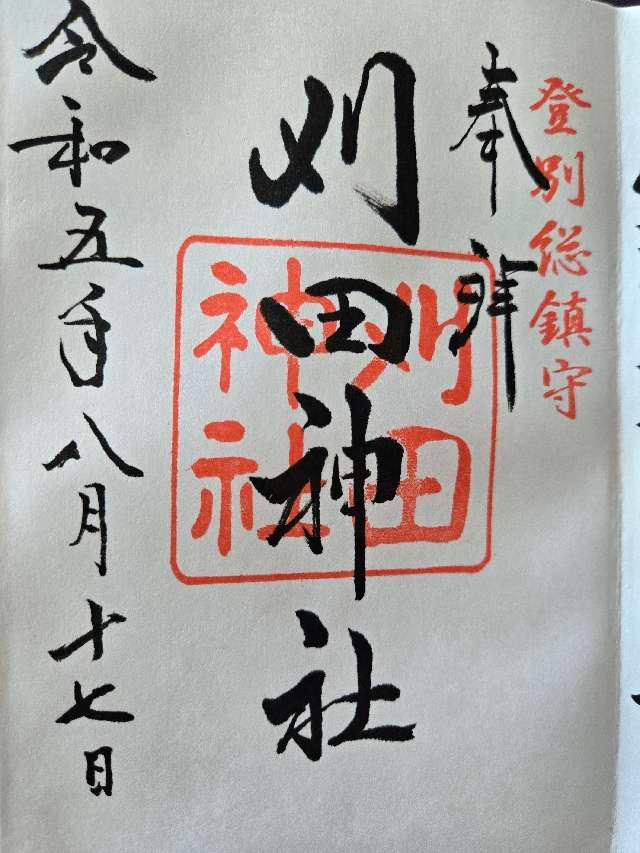 登別総鎮守
奉拝
刈田神社
刈田
神社
令和五年八月十七日